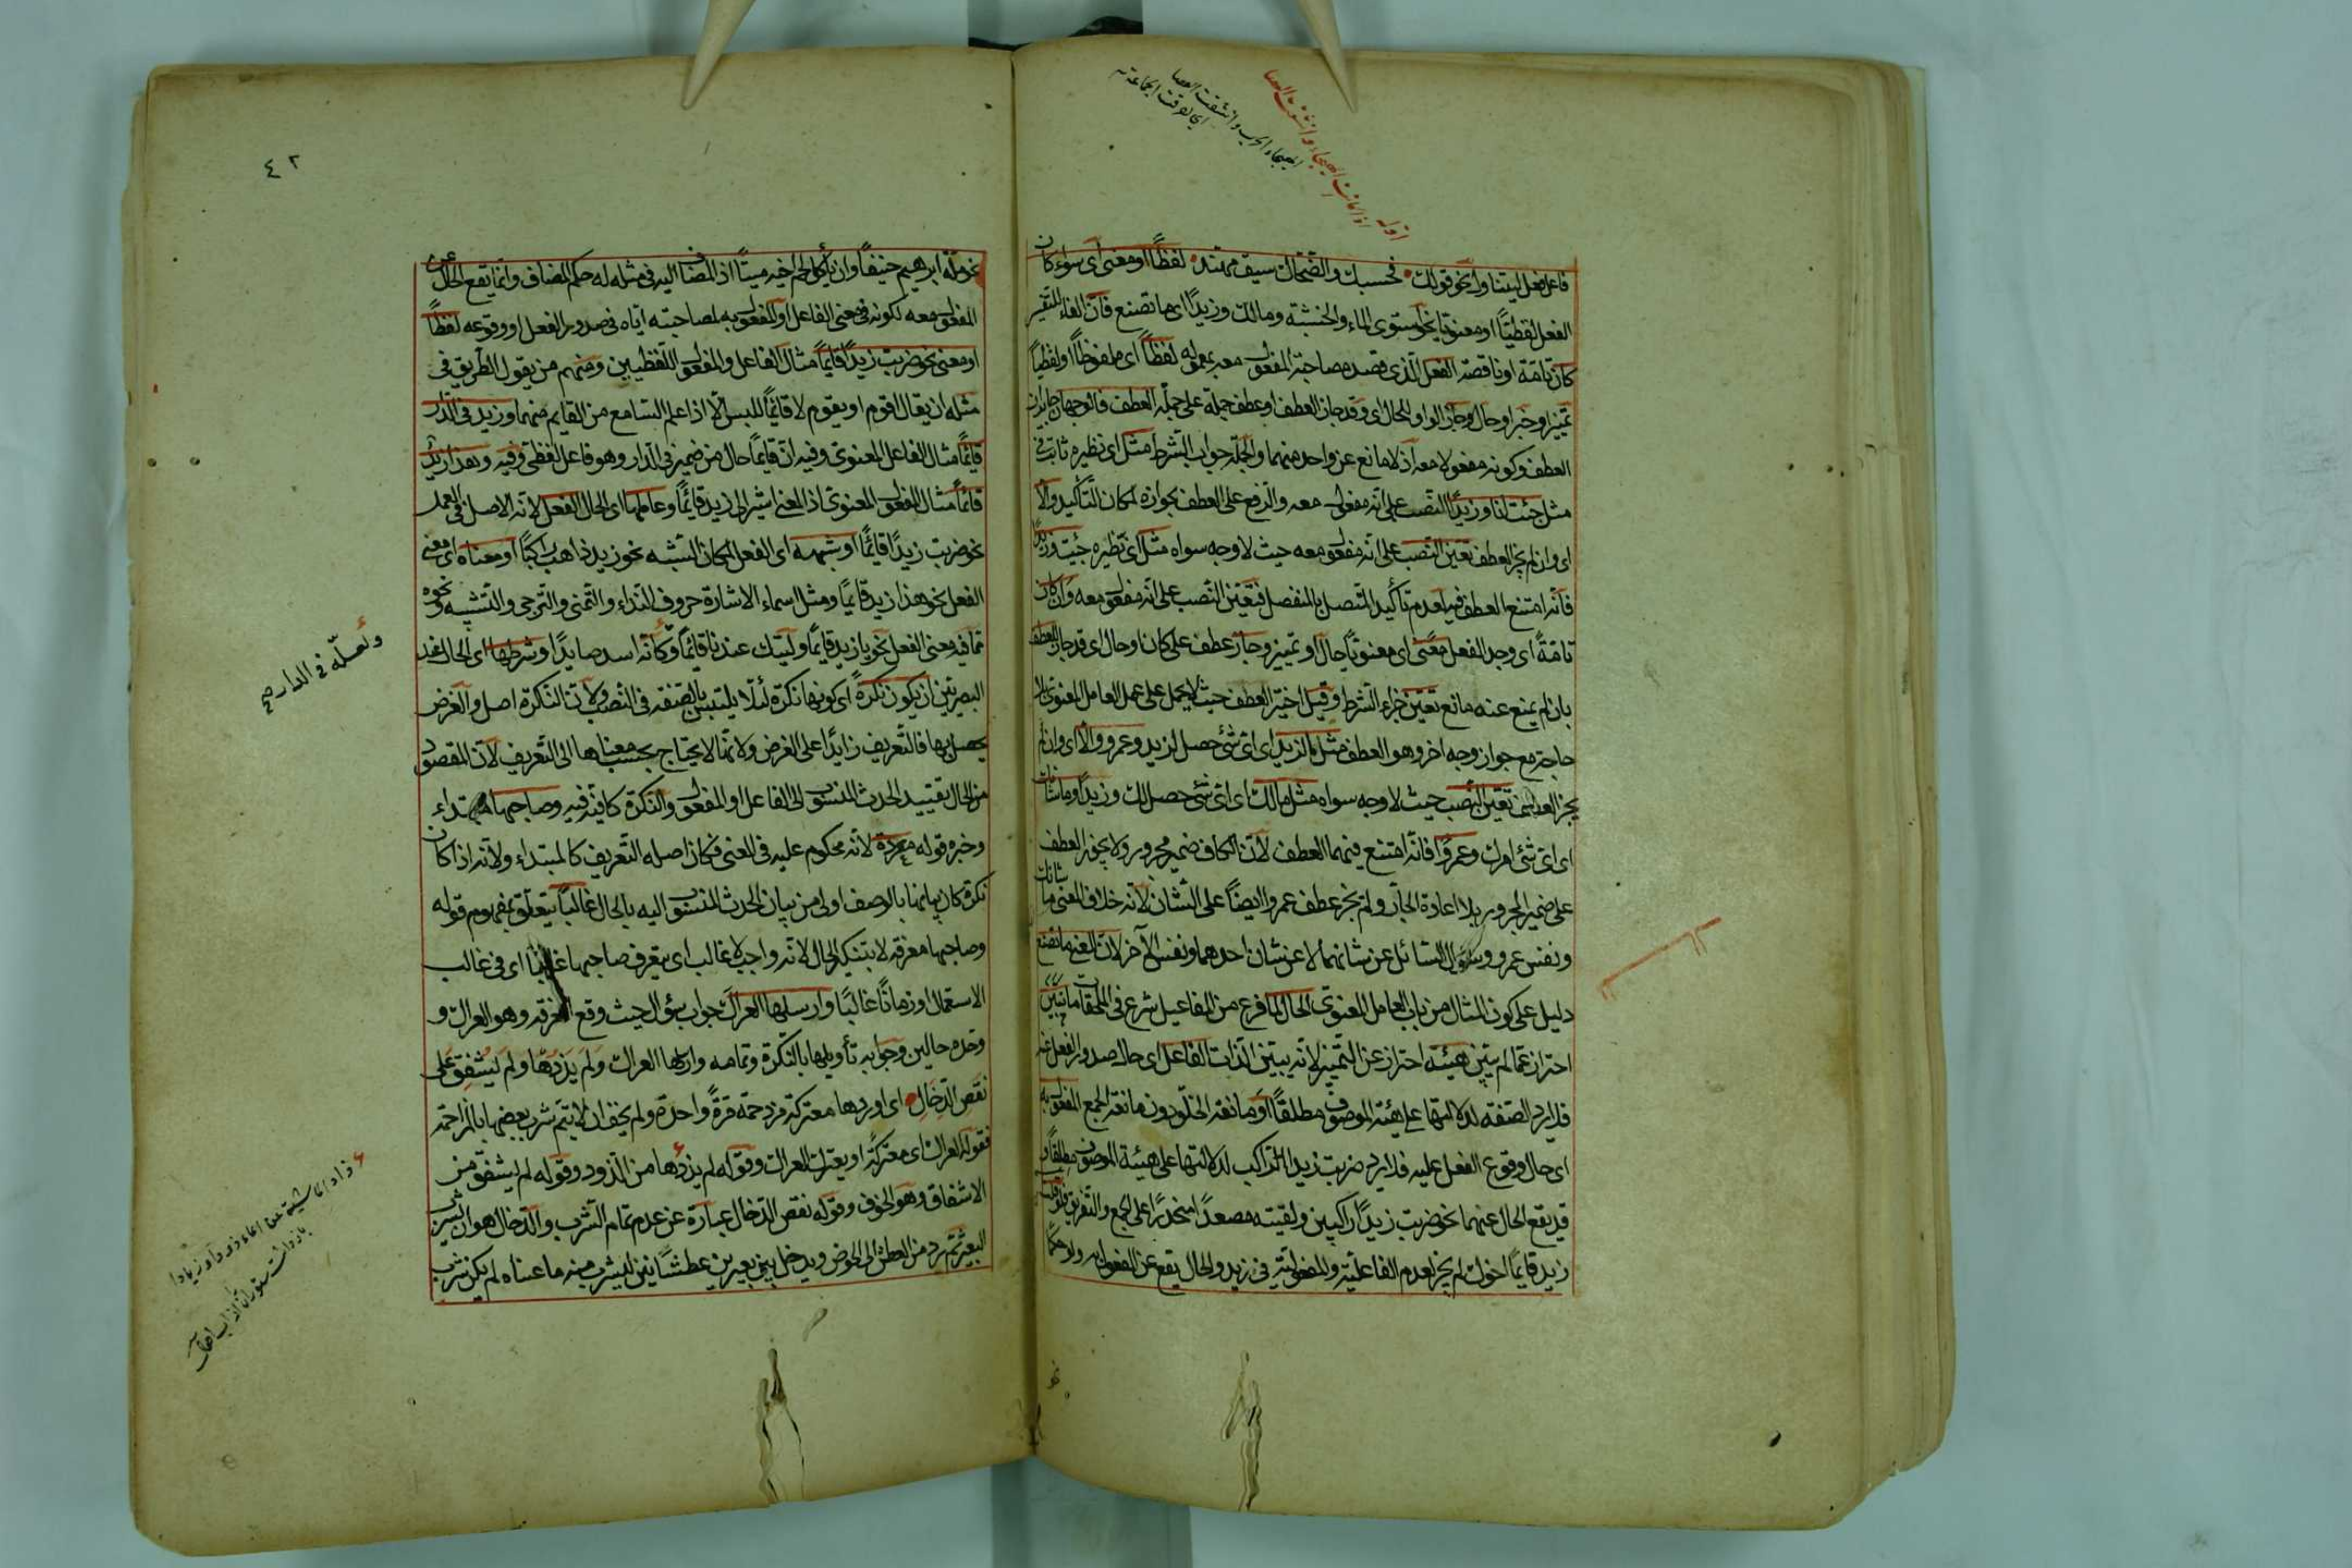 اوله
اذا كانت الهيجاء وانشقت العصا
الهيجاء الحرب وانشقت العصا
اى تفرقت الجماعة
فاعل فعل ليتناول نحو قولك فحسبك والضحاك سيف مهند لفظًا او معنى اى سواء كان
الفعل لفظيًّا او معنويًّا نحو استوى الماء والخشبة ومالك وزيدًا اى ما تصنع فان الفاء للتفسير
كان تامّة او ناقصة الفعل الّذى قصد مصاحبة المفعول معه بمعموله لفظًا اى ملفوظًا او لفظيًّا
تميز او خبر او حال وجاز الواو للحال اى وقد جاز العطف او عطف جملة على جملة العطف فالوجهان جايزان
العطف وكونه مفعولا معه اذ لا مانع عن واحد منهما والجملة جواب الشرط مثل اى نظيره ثابت فى
مثل جئت انا وزيدًا النّصب على انّه مفعول معه والرفع على العطف بجوازه لمكان التّأكيد والّا
اى وان لم يجز العطف تعيّن النّصب على انّه مفعول معه حيث لا وجه سواه مثل اى نظيره جئت وزيدًا
فانّه امتنع العطف فيه لعدم تأكيد المتصل بالمنفصل فتعيّن النّصب على انّه مفعول معه وان كان
تامّةً اى وجد الفعل معنًى اى معنويًّا حال او تميز وجاز عطف على كان او حال اى قد جاز العطف
بان لم يمنع عنه مانع تعيّن جزاء الشرط وقيل اختير العطف حيث لا يحمل على عمل العامل المعنوى بلا
حاجة مع جواز وجه اخر وهو العطف مثل ما لزيد اى اىّ شئ حصل لزيد وعمرو والّا اى وان لم
يجز العطف تعيّن النّصب حيث لا وجه سواه مثل مالك اى اىّ شئ حصل لك وزيدًا وما شانك
اى اىّ شئ امرك وعمروًا فانّه امتنع فيهما العطف لانّ الكاف ضمير مجرور ولا يجوز العطف
على ضمير المجرور بلا اعادة الجارّ ولم يجز عطف عمروا ايضًا على الشّان لانّه خلاف المعنى ما شانك
ونفس عمرو وسؤال السّائل عن شانهما لا عن شان احدهما ونفس الآخر لانّ المعنى ما تصنع
دليل على كون المثال من باب العامل المعنوى الحال لما فرغ من المفاعيل شرع فى الملحقات ما يبيّن
احتراز عمّا لم يبيّن هيئة احتراز عن التّميز لانّه يبيّن الذّات الفاعل اى حال صدور الفعل عنه
فلا يرد الصّفة لدلالتها على هيئة الموصوف مطلقًا او مانعة الخلو دون مانعة الجمع المفعول به
اى حال وقوع الفعل عليه فلا يرد ضربت زيدا الرّاكب لدلالتها على هيئة الموصوف مطلقًا
قد يقع الحال عنهما نحو ضربت زيدًا راكبين ولقيته مصعدًا منحدرًا على الجمع والتّفريق
زيد قايمًا اخوك لم يجز لعدم الفاعليّة والمفعوليّة فى زيد والحال يقع عن المفعول به ولو حكمًا
نحو
٤٢
نحو ملّة ابرهيم حنيفًا وان يأكل لحم اخيه ميتًا اذ المضاف اليه فى مثله له حكم المضاف وانّما يقع الحال عن
المفعول معه لكونه فى معنى الفاعل او المفعول به لمصاحبته ايّاه فى صدور الفعل او وقوعه لفظًا
او معنى نحو ضربت زيدًا قايمًا مثال الفاعل والمفعول اللّفظيين ومنهم من يقول الطّريق فى
مثله ان يقال اقوم او يقوم لا قائمًا للبس الّا اذا علم السّامع من القايم منهما وزيد فى الدّار
قايمًا مثال الفاعل المعنوى وفيه انّ قايمًا حال من ضمير فى الدّار وهو فاعل لفظى وفيه وهذا زيد
قائمًا مثال المفعول المعنوى اذ المعنى اشير الى زيد قائمًا وعاملها اى الحال الفعل لانّه الاصل فى العمل
نحو ضربت زيدًا قائمًا او شبهه اى الفعل لمكان الشّبه نحو زيد ذاهب راكبًا او معناه اى معنى
الفعل نحو هذا زيد قايمًا ومثل اسماء الاشارة حروف النّداء والتّمنى والتّرجى والتّشبيه ونحوه
ممّا فيه معنى الفعل نحو يا زيد قايمًا وليتك عندنا قائمًا وكأنّه اسد صايدًا وشرطها اى الحال عند
البصريّين ان يكون نكرةً اى كونها نكرة لئلّا يلتبس بالصّفة فى النّصب ولانّ النّكرة اصل والغرض
يحصل بها فالتّعريف زايدًا على الغرض ولانّها لا يحتاج بحسب معناها الى التّعريف لانّ المقصود
من الحال تقييد الحدث المنسوب الى الفاعل او المفعول والنّكرة كافية فيه وصاحبها مبتداء
وخبره قوله معرفة لانّه محكوم عليه فى المعنى فكان اصله التّعريف كالمبتداء ولانّه اذا كان
نكرة كان بيانها بالوصف اولى من بيان الحدث المنسوب اليه بالحال غالبًا يتعلّق بمفهوم قوله
وصاحبها معرفة لا بتنكير الحال لانّه واجب لا غالب اى يتعرف صاحبها غالبًا اى فى غالب
الاستعمال او زمانًا غالبًا وارسلها العراك جواب سؤال حيث وقع المعرفة وهو العراك و
وحده حالين وجوابه تأويلها بالنّكرة وتمامه وارسلها العراك ولم يذدها ولم يشفق على
نقص الدّخال اى اوردها معتركة مزدحمة مرّةً واحدة ولم يخف ان لا يتمّ شرب بعضها بالمزاحمة
فقوله العراك اى معتركةً او يعترك العراك وقوله لم يزدها من الذّود وقوله لم يشفق من
الاشفاق وهو الخوف وقوله نقص الدّخال عبارة عن عدم تمام الشّرب والدّخال هو ان يشرب
البعير ثمّ يرد من العطن الى الحوض ويدخل بين بعيرين عطشانين ليشرب منه ما عساه لم يكن شرب
ولعلّه فى الدار صح